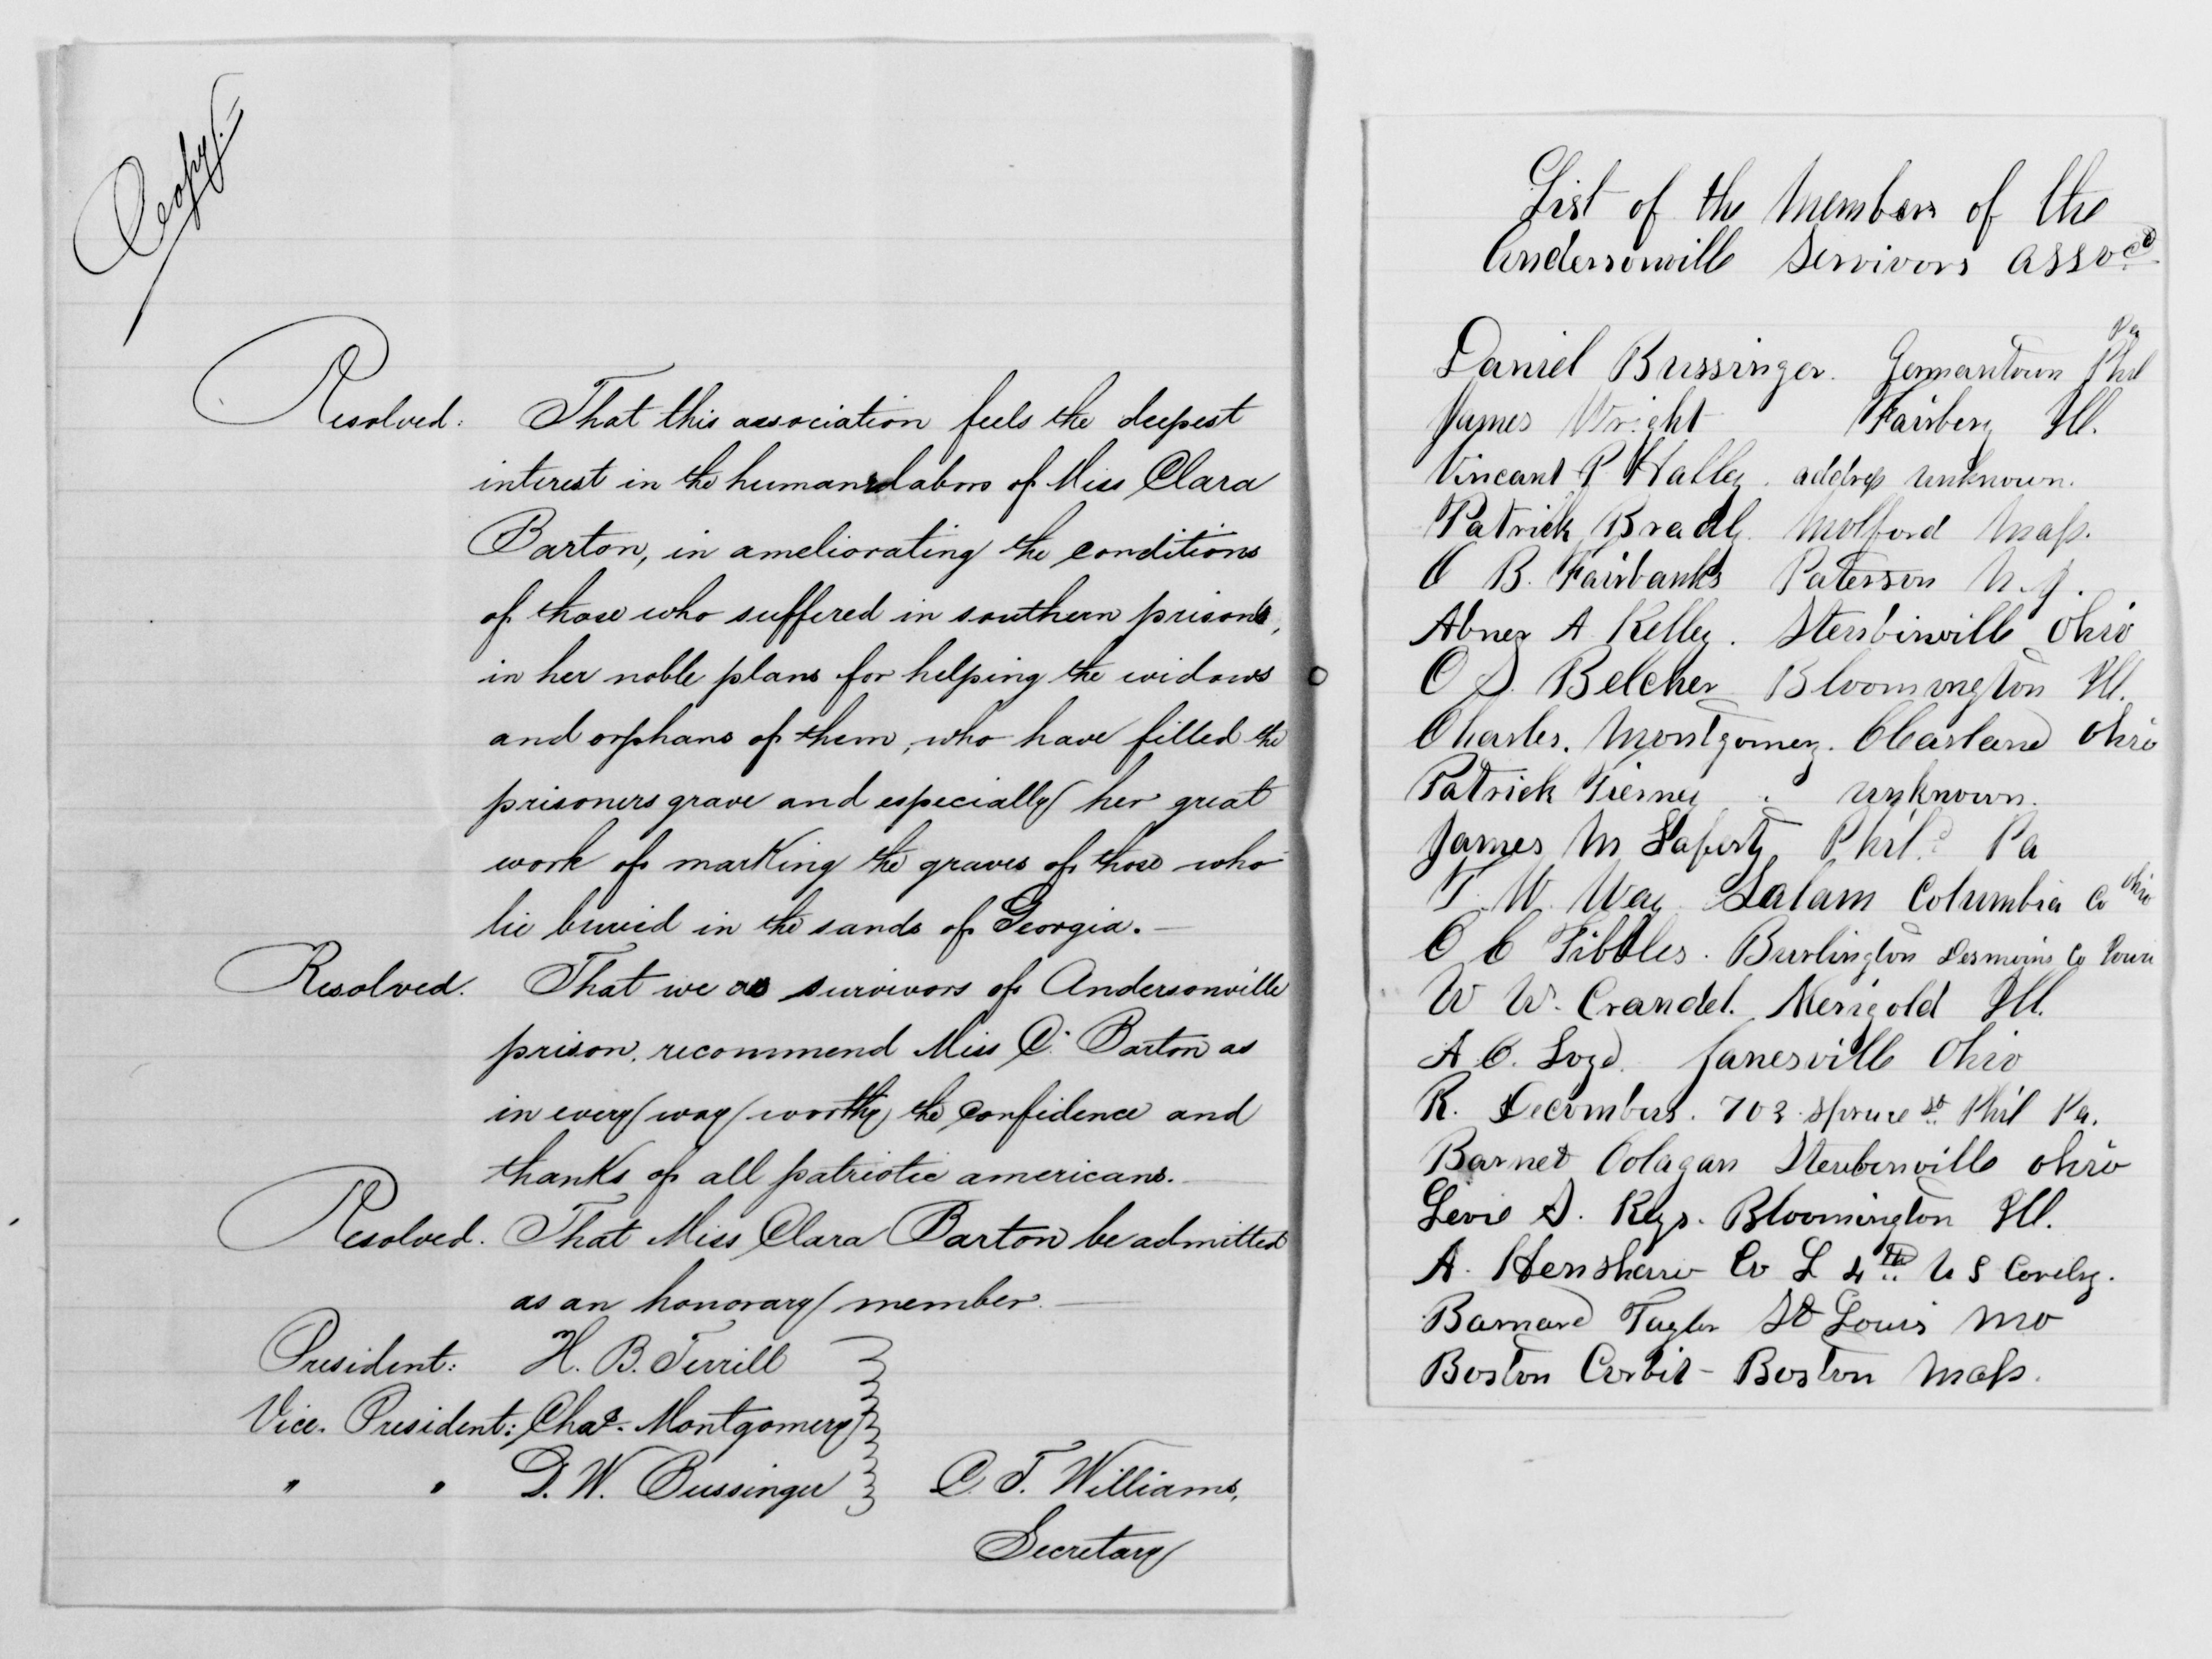 Copy.
Resolved: That this association feels the deepest
interest in the humane labors of Miss Clara
Barton, in ameliorating the conditions
of those who suffered in southern prisons,
in her noble plans for helping the widows
and orphans of them, who have filled the
prisoners grave and especially her great
work of marking the graves of those who
lie buried in the sands of Georgia.
Resolved. That we as survivors of Andersonville
prison, recommend Miss C. Barton as
in every way worthy the confidence and
thanks of all patriotic americans.
Resolved. That Miss Clara Barton be admitted
as an honorary member.
President: H. B. Terrill
Vice. President: Chas. Montgomery
" " D. W. Bussinger C. T. Williams,
Secretary
List of the Members of the
Andersonville Servivors Assocd
Daniel Bussinger. Germantown Phil Pa
James Wright Fairbery Ill.
Vincant P Halley. address unknown.
Patrick Bradly. Molford Mass.
O B. Fairbanks Paterson N. J.
Abner A Kelley. Sterbinville Ohio
O S. Belcher Bloomington Ill.
Charles. Montgomery. Cleaveland Ohio
Patrick Tierney. unknown.
James M Laferty Phild Pa
T. W. Way Salam Columbia Co Ohio
O C Tibbles. Burlington Desmoins Co Iowa
W W. Crandel. Merigold Ill.
A. C. Loyd. Janesville Ohio
R. 703 Spruce St Phil Pa.
Barnet Colagan Steubenville Ohio
Levie S. Keys. Bloomington Ill.
A. Henshaw Co L 4th U S Cavelry.
Barnard Tayler St Louis Mo
Boston Corbit - Boston Mass.